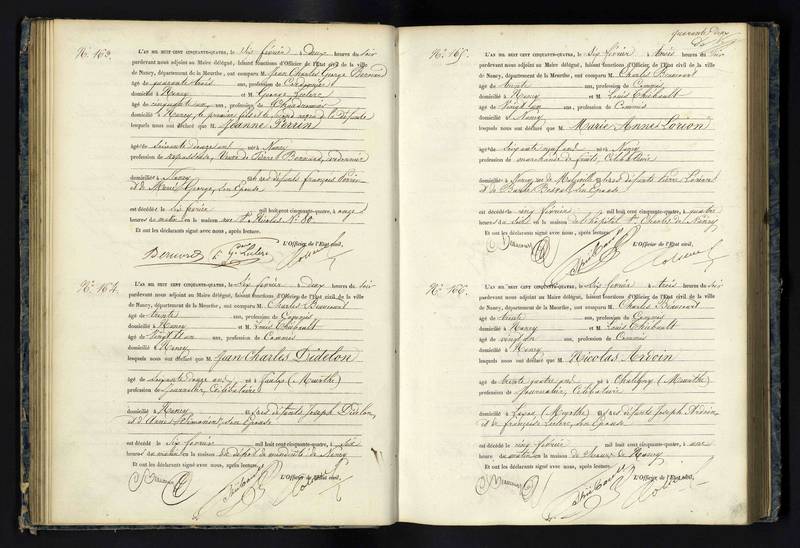 No. 163.
L'AN MIL HUIT CENT CINQUANTE-QUATRE, le Six février à deux heures du soir
pardevant nous adjoint au Maire délégué, faisant fonctions d'Officier de l'Etat civil de la ville
de Nancy, département de la Meurthe, ont comparu M. Jean Charles George Bernard
âgé de quarante trois ans, profession de Cordonnier
domicilié à Nancy et M. George Leclerc
âgé de cinquante un ans, profession de
domicilié à Nancy, le premier fils et le second neveu de la défunte
lesquels nous ont déclaré que M. Jeanne Perrin
âgé de soixante né à Nancy
profession de repasseuse, Veuve de Pierre Bernard, cordonnier
domicilié à Nancy et des défunts François Perrin
et de Marie George, son Epouse
est décédée le six février mil huit cent cinquante-quatre, à onze
heures du matin en la maison rue St. Nicolas No. 80
Et ont les déclarants signé avec nous, après lecture.
L'Officier de l'Etat civil,
No. 164.
L'AN MIL HUIT CENT CINQUANTE-QUATRE, le Six février à deux heures du soir
pardevant nous adjoint au Maire délégué, faisant fonctions d'Officier de l'Etat civil de la ville
de Nancy, département de la Meurthe, ont comparu M. Charles Beaucourt
âgé de trente ans, profession de Commis
domicilié à Nancy et M. Louis Thiébault
âgé de vingt un ans, profession de Commis
domicilié à Nancy
lesquels nous ont déclaré que M. Jean Charles Didelon
âgé de soixante onze ans né à (Meurthe)
profession de Journalier, Célibataire
domicilié à Nancy et des défunts Joseph Didelon,
et d'Anne son Epouse
est décédé le six février mil huit cent cinquante-quatre, à six
heures du matin en la maison de dépôt de mendicité de Nancy
Et ont les déclarants signé avec nous, après lecture.
L'Officier de l'Etat civil,
quarante deux
No. 165.
L'AN MIL HUIT CENT CINQUANTE-QUATRE, le Six février à trois heures du soir
pardevant nous adjoint au Maire délégué, faisant fonctions d'Officier de l'Etat civil de la ville
de Nancy, département de la Meurthe, ont comparu M. Charles Beaucourt
âgé de trente ans, profession de Commis
domicilié à Nancy et M. Louis Thiébault
âgé de vingt un ans, profession de Commis
domicilié à Nancy
lesquels nous ont déclaré que M. Marie Annes Lorion
âgé de soixante neuf ans né à Nancy
profession de marchande de fruits, Célibataire
domicilié à Nancy, rue de et des défunts Pierre Lorion
et de Barbe son Epouse
est décédée le cinq février mil huit cent cinquante-quatre, à quatre
heures du soir en la maison de l'hôpital St. Charles de Nancy
Et ont les déclarants signé avec nous, après lecture.
L'Officier de l'Etat civil,
No. 166.
L'AN MIL HUIT CENT CINQUANTE-QUATRE, le Six février à trois heures du soir
pardevant nous adjoint au Maire délégué, faisant fonctions d'Officier de l'Etat civil de la ville
de Nancy, département de la Meurthe, ont comparu M. Charles Beaucourt
âgé de trente ans, profession de Commis
domicilié à Nancy et M. Louis Thiébault
âgé de vingt un ans, profession de Commis
domicilié à Nancy
lesquels nous ont déclaré que M. Nicolas Ardoin
âgé de trente quatre ans né à Chaligny (Meurthe)
profession de Journalier, Célibataire
domicilié à (Meurthe) et des défunts Joseph Ardoin,
et de françoise Leclerc, son Epouse
est décédé le cinq février mil huit cent cinquante-quatre, à onze
heures du matin en la maison de Secours de Nancy
Et ont les déclarants signé avec nous, après lecture.
L'Officier de l'Etat civil,